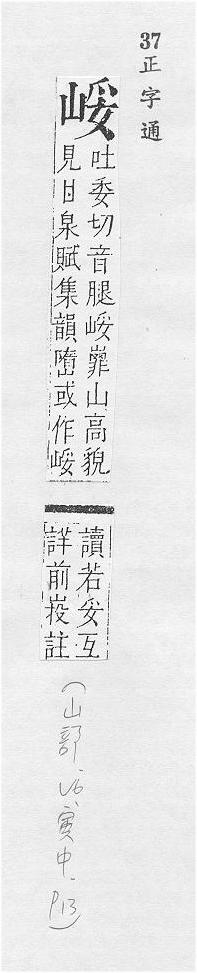 37 正字通
峖
吐委切音腿峖嶵山高貌
見甘泉賦集韻嶞或作峖
讀若妥互
詳前㟎註
(山部、16、寅中、P13)